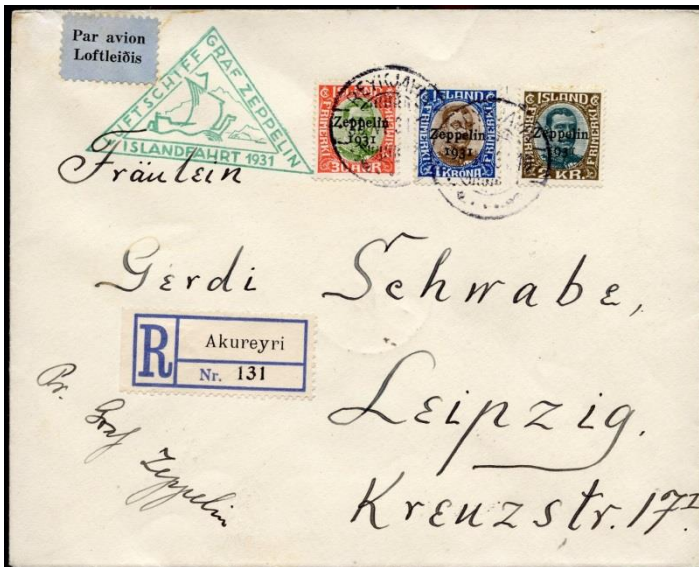 Par avion
Loftleiðis
LUFTSCHIFF GRAF ZEPPELIN
ISLANDFAHRT 1931
Zeppelin
1931
30 AUR
ÍSLAND
Zeppelin
1931
1 KRÓNA
ÍSLAND
Zeppelin
1931
2 KR.
Fräulein
Gerdi Schwabe,
R
Akureyri
Nr. 131
Leipzig.
Kreuzstr. 17 I
Pr. Graf Zeppelin